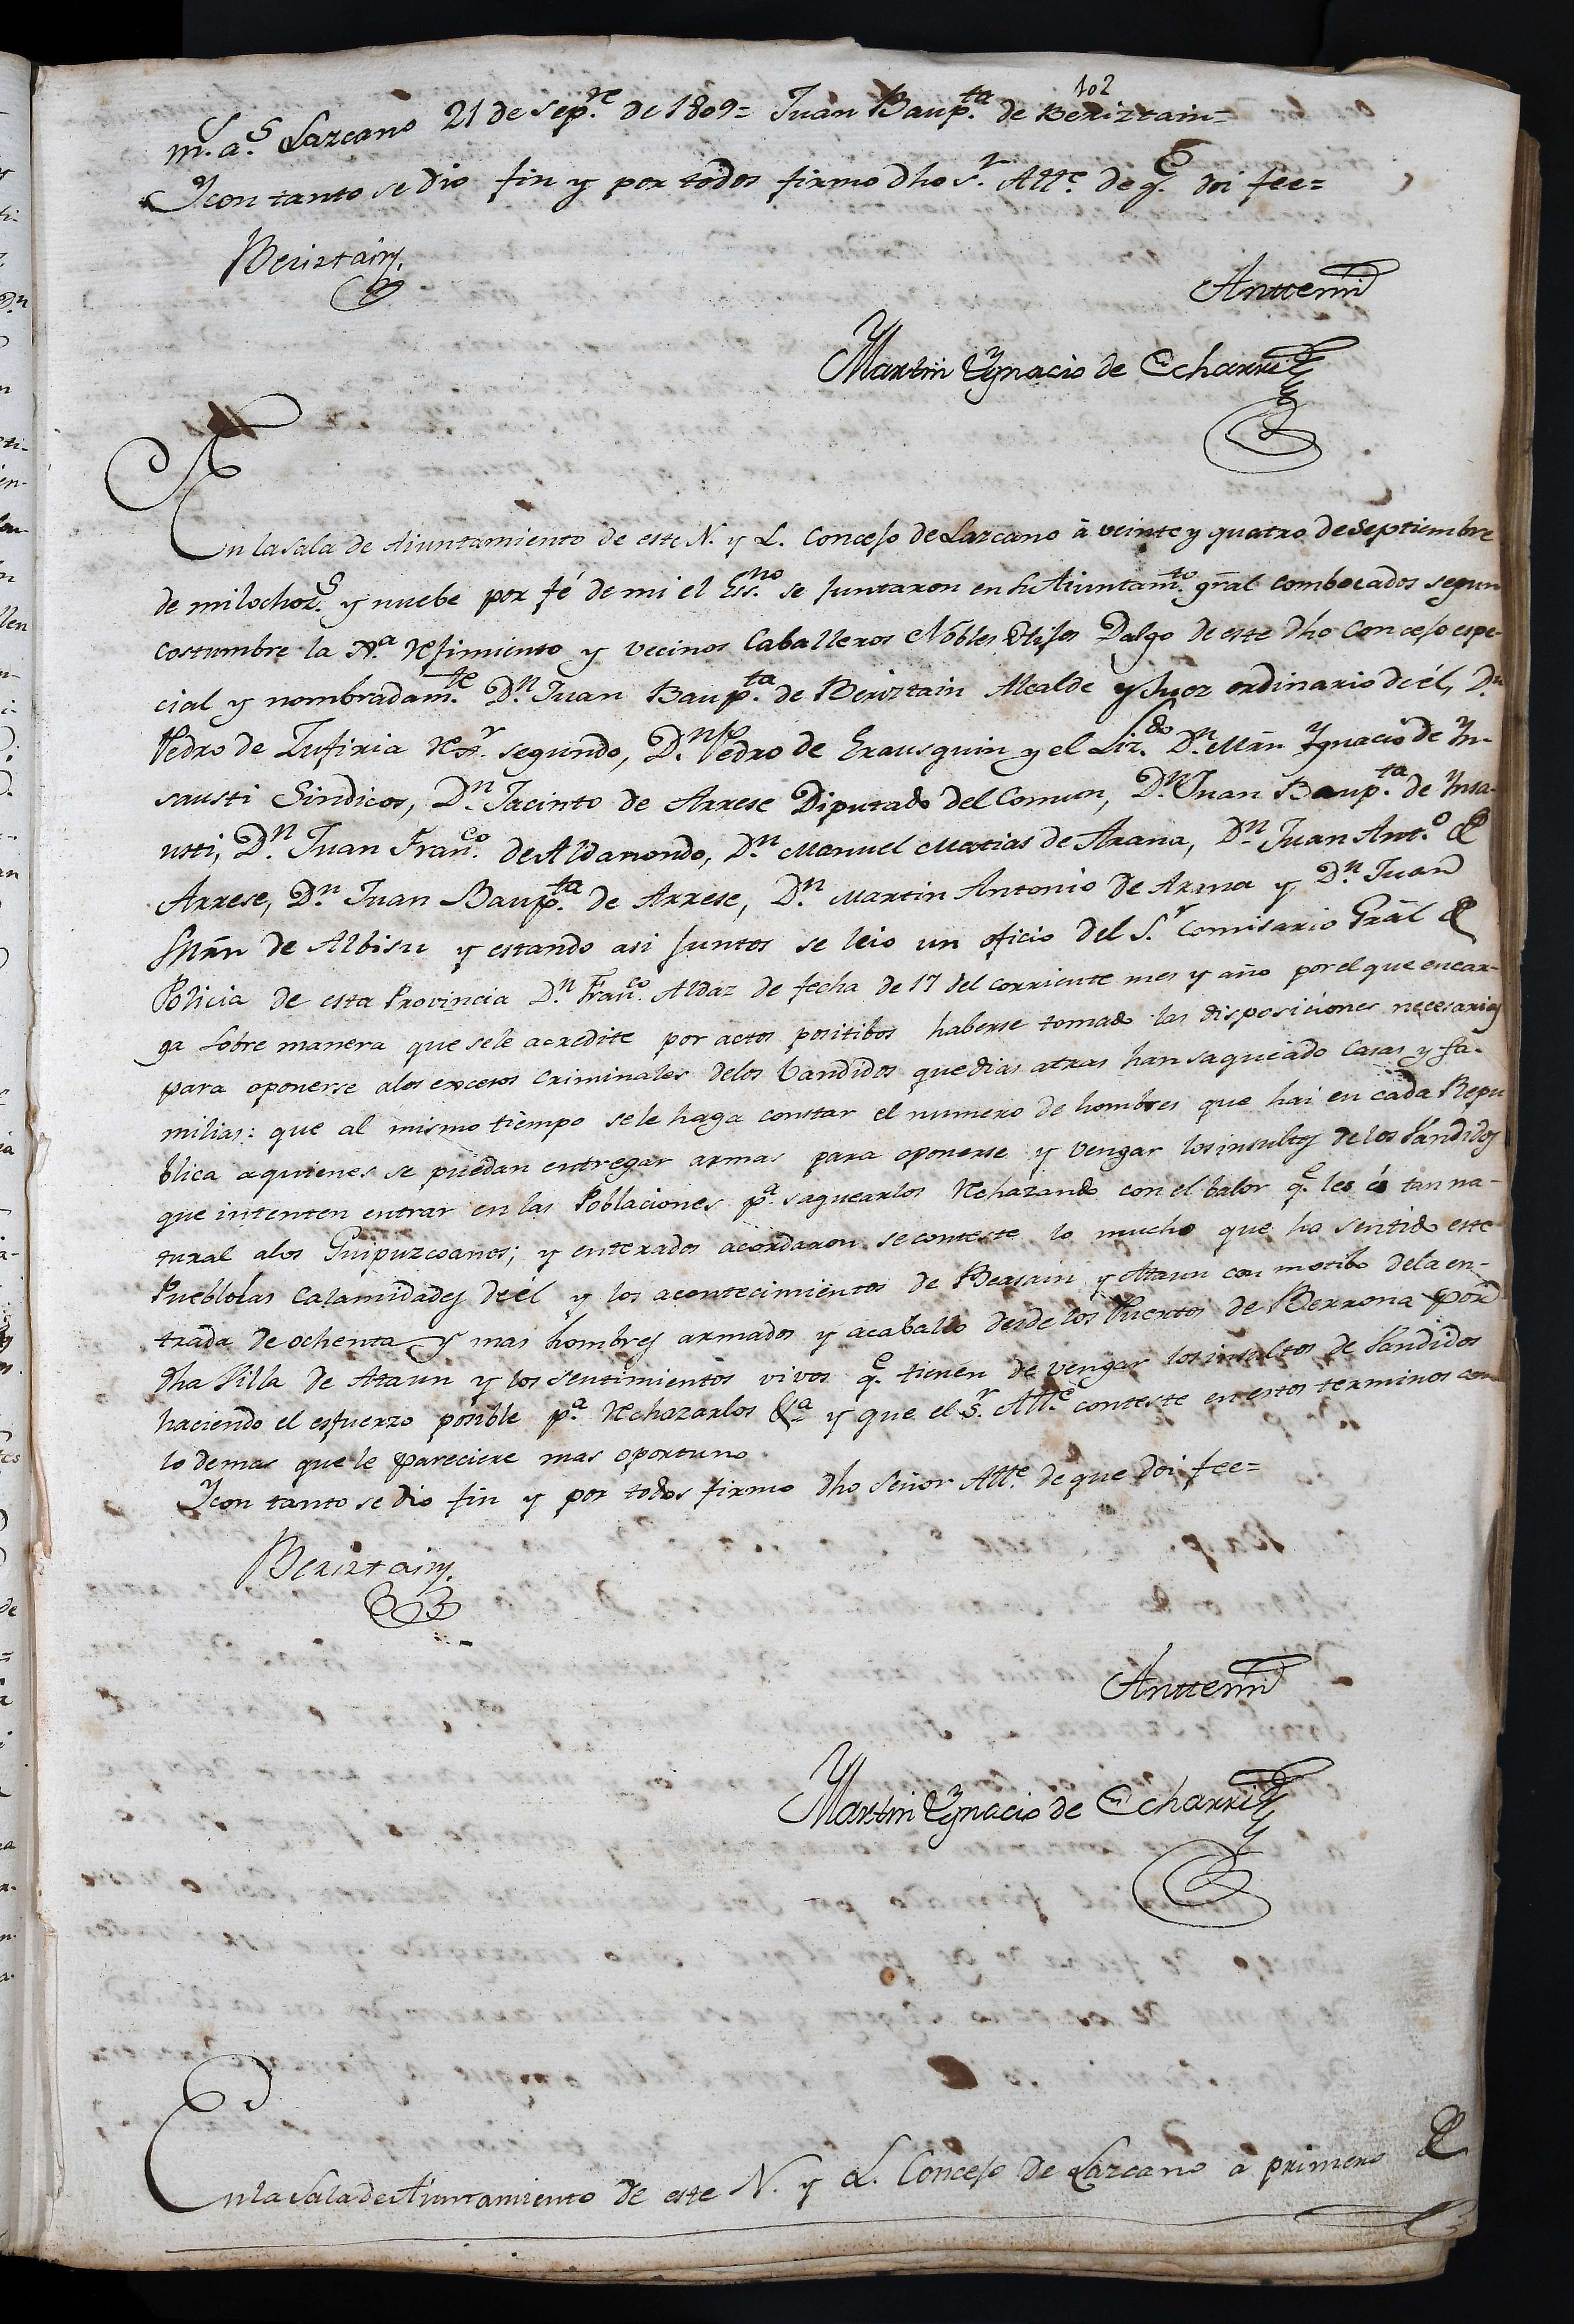 102
m.s a.s Lazcano 21 de Sep.re de 1809= Juan Baup.ta de Beriztain=
Y con tanto se dio fin y por todos firmo dho S.r Alle. de q.e doi fee=
Beriztain.
Anttemi
Martin Ygnacio de Echarri
En la sala de Aiuntamiento de este N. y L. Concejo de Lazcano à veinte y quatro de Septiembre
de mil ochoz.s y nuebe por fé de mi el Ess.no se juntaron en su Aiuntam.to gral combocados segun
costumbre la Just.a Rejimiento y vecinos Caballeros Nobles Hijos Dalgo de este dho Concejo espe-
cial y nombradam.te D.n Juan Baup.ta de Beriztain Alcalde y Juez ordinario de él, D.n
Pedro de Zufiria Rex.r segundo, D.n Pedro de Erausquin y el Liz.do D.n Mãn Ygnacio de Yn-
sausti Sindicos, D.n Jacinto de Arrese Diputado del Comun, D.n Juan Baup.ta de Ynsa-
usti, D.n Juan Fran.co de Aldamondo, D.n Manuel Matias de Arana, D.n Juan Ant.o de
Arrese, D.n Juan Baup.ta de Arrese, D.n Martin Antonio de Arana y D.n Juan
Mãn de Albisu y estando asi juntos se leio un oficio del S.r Comisario Grãl de
Policia de esta Provincia D.n Fran.co Aldaz de fecha de 17 del corriente mes y año por el que encar-
ga sobre manera que se le acredite por actos positibos haberse tomado las disposiciones necesarias
para oponerse a los excesos criminales de los bandidos que dias atras han saqueado Casas y fa-
milias: que al mismo tiempo se le haga constar el numero de hombres que hai en cada Repu
blica a quienes se puedan entregar armas para oponerse y vengar los insultos de los bandidos
que intenten entrar en las Poblaciones p.a saquearlos Rechazando con el balor q.e les és tan na-
tural a los Guipuzcoanos; y enterados acordaron se conteste lo mucho que ha sentido este
Pueblo las calamidades de él y los acontecimientos de Beasain y Ataun con motibo de la en-
trada de ochenta y mas hombres armados y acaballo desde los Puertos de Berrona por
dha Villa de Ataun y los sentimientos vivos q.e tienen de vengar los insultos de bandidos
haciendo el esfuerzo posible p.a Rechazarlos &.a y que el S.r Alle. conteste en estos terminos con
lo demas que le pareciere mas oportuno.
Y con tanto se dio fin y por todos firmo dho Señor Alle. de que doi fee=
Beriztain.
Anttemi
Martin Ygnacio de Echarri
En la Sala de Aiuntamiento de este N. y L. Concejo de Lazcano à primero de